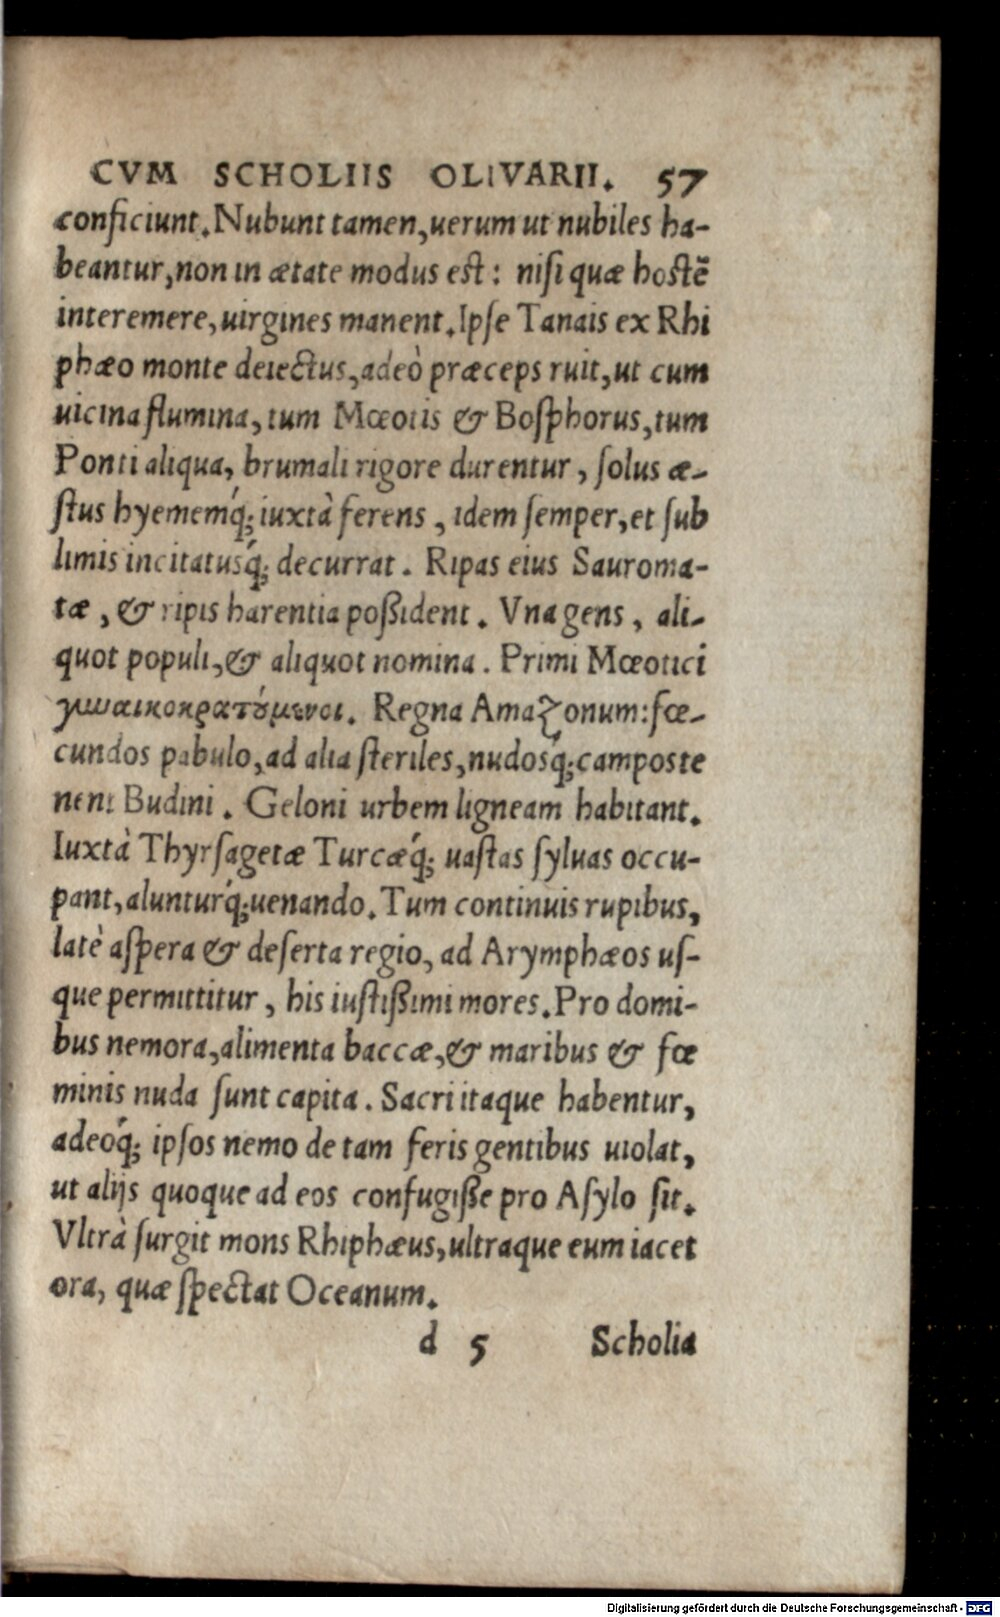 CVM SCHOLIIS OLIVARII. 57
conficiunt. Nubunt tamen, uerum ut nubiles ha-
beantur, non in ætate modus est: nisi quæ hostẽ
interemere, uirgines manent. Ipse Tanais ex Rhi
phæo monte deiectus, adeò præceps ruit, ut cum
uicina flumina, tum Mœotis & Bosphorus, tum
Ponti aliqua, brumali rigore durentur, solus æ-
stus hyememq́; iuxtà ferens, idem semper, et sub
limis incitatusq́; decurrat. Ripas eius Sauroma-
tæ, & ripis harentia poßident. Vna gens, ali-
quot populi, & aliquot nomina. Primi Mœotici
γυναικοκρατȣ́μενοι. Regna Amazonum: fœ-
cundos pabulo, ad alia steriles, nudosq́; campos te
nent Budini. Geloni urbem ligneam habitant.
Iuxtà Thyrsagetæ Turcæq́; uastas syluas occu-
pant, alunturq́; uenando. Tum continuis rupibus,
latè aspera & deserta regio, ad Arymphæos us-
que permittitur, his iustißimi mores. Pro domi-
bus nemora, alimenta baccæ, & maribus & fœ
minis nuda sunt capita. Sacri itaque habentur,
adeoq́; ipsos nemo de tam feris gentibus uiolat,
ut alijs quoque ad eos confugiße pro Asylo sit.
Vltrà surgit mons Rhiphæus, ultraque eum iacet
ora, quæ spectat Oceanum.
d 5 Scholia
Digitalisierung gefördert durch die Deutsche Forschungsgemeinschaft - DFG